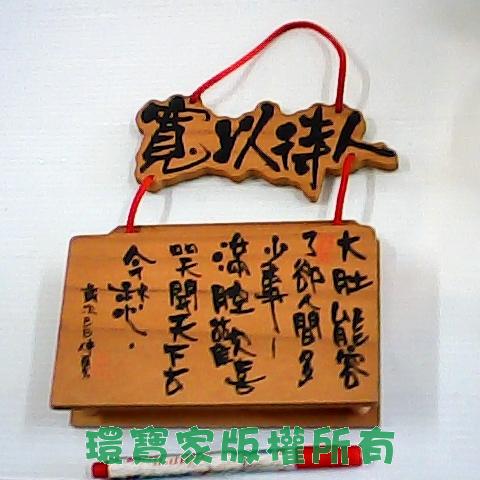 寬以待人
大肚能容
了卻人間多
少事
滿腔歡喜
笑開天下古
今愁
歲次己巳仲夏
環寶家版權所有